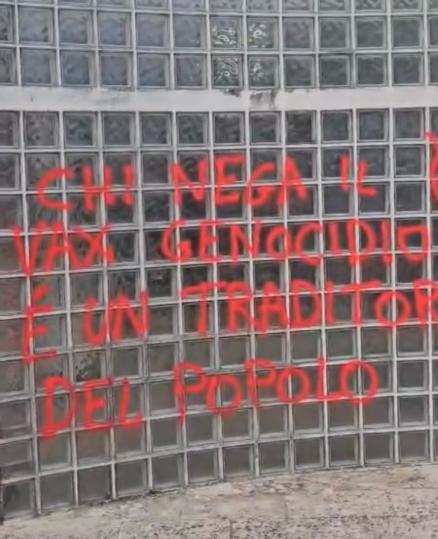 CHI NEGA IL
VAX GENOCIDIO
È UN TRADITOR
DEL POPOLO